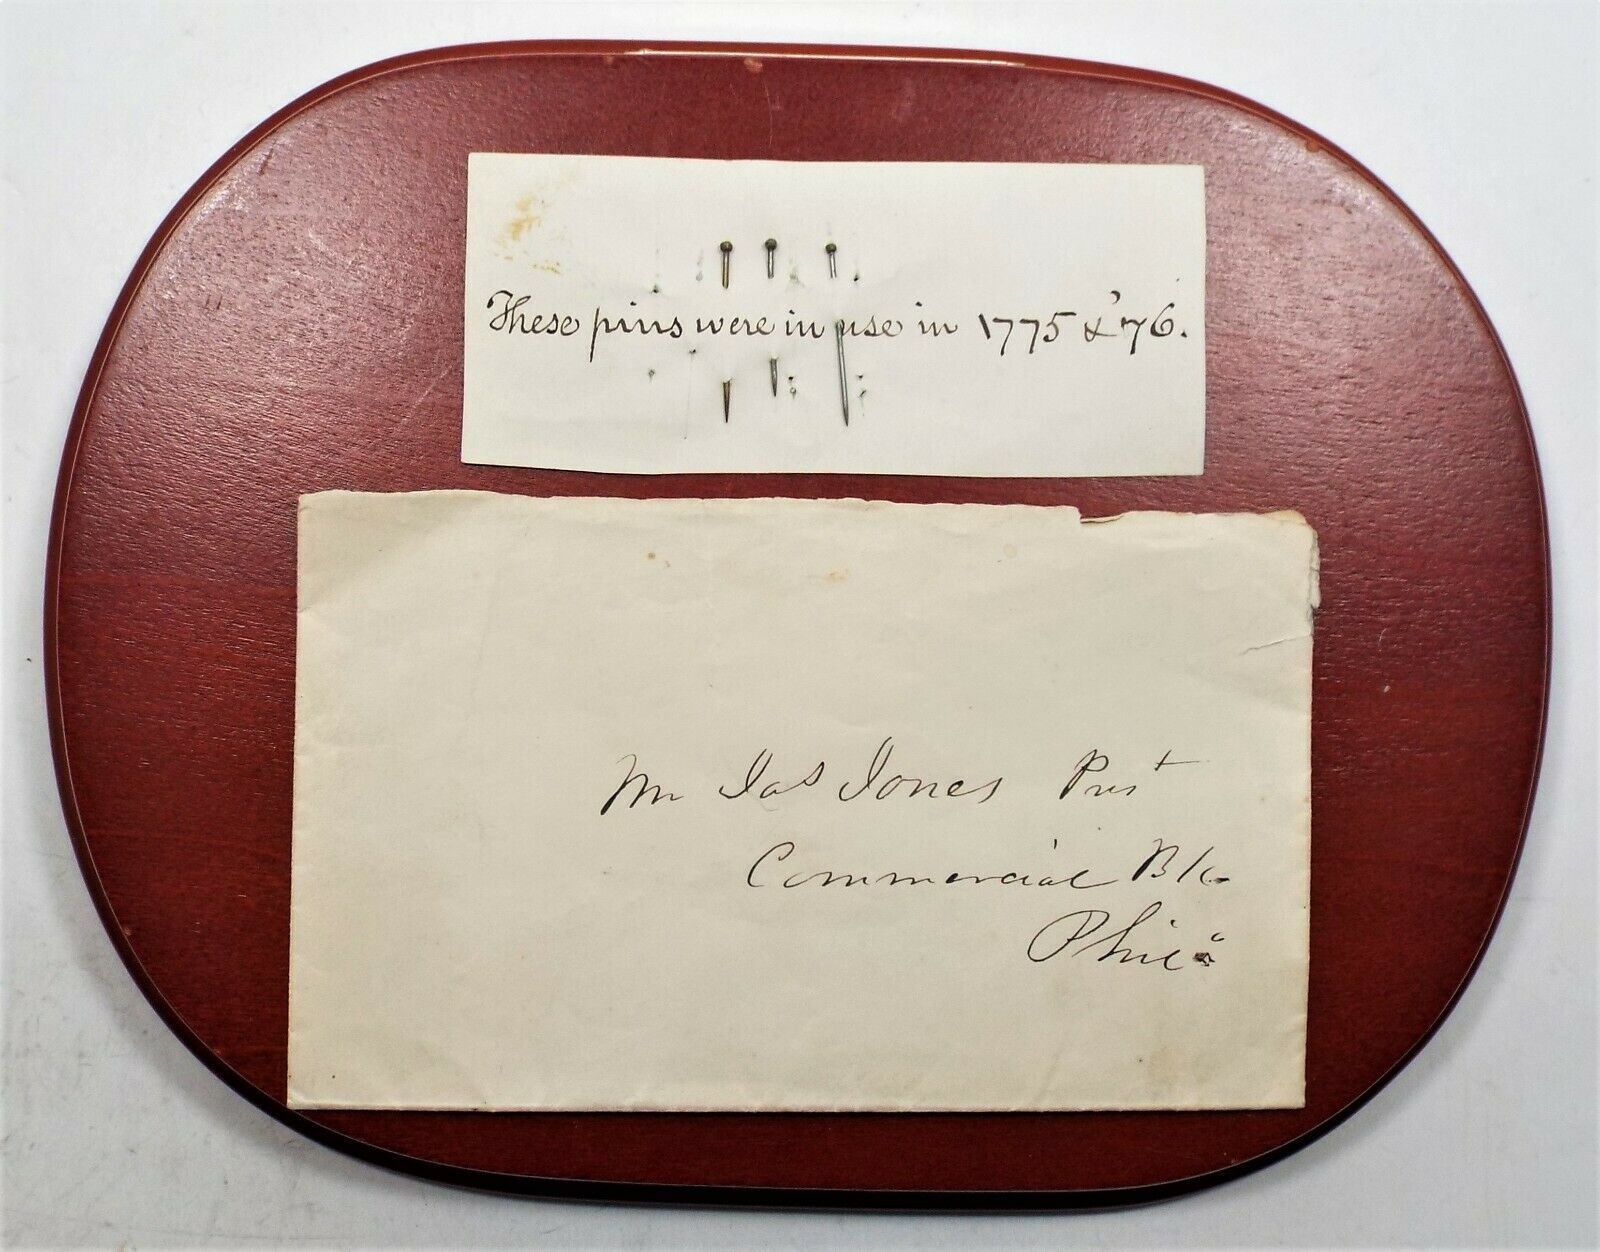 These pins were in use in 1775 & '76.
Mr Jas Jones Prest
Commercial Bk
Phila